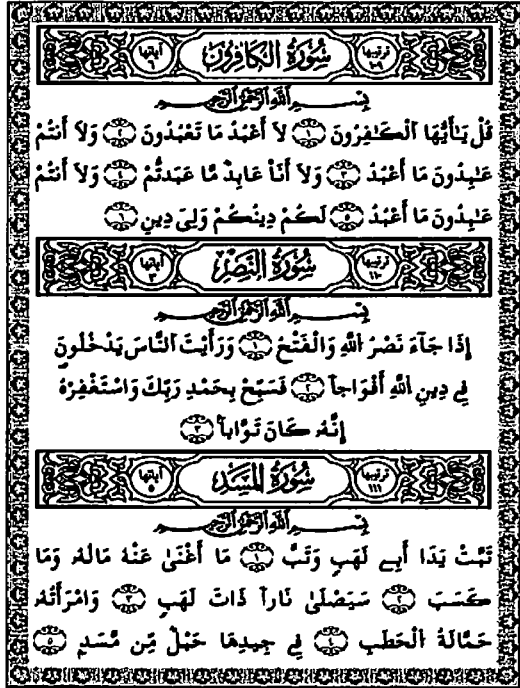 ترتيبها ١٠٩ سُورَةُ الكَافِرُونَ آياتها ٦
بِسْمِ اللَّهِ الرَّحْمَٰنِ الرَّحِيمِ
قُلْ يَـٰٓأَيُّهَا اَ۬لْكَـٰفِرُونَ ١ لَآ أَعْبُدُ مَا تَعْبُدُونَ ٢ وَلَآ أَنتُمْ
عَـٰبِدُونَ مَآ أَعْبُدُ ٣ وَلَآ أَنَا۠ عَابِدٌ مَّا عَبَدتُّمْ ٤ وَلَآ أَنتُمْ
عَـٰبِدُونَ مَآ أَعْبُدُ ٥ لَكُمْ دِينُكُمْ وَلِيَ دِينِ ٦
ترتيبها ١١٠ سُورَةُ النَّصْرِ آياتها ٣
بِسْمِ اللَّهِ الرَّحْمَٰنِ الرَّحِيمِ
إِذَا جَآءَ نَصْرُ اُ۬للَّهِ وَالْفَتْحُ ١ وَرَأَيْتَ اَ۬لنَّاسَ يَدْخُلُونَ
فِے دِينِ اِ۬للَّهِ أَفْوَاجاً ٢ فَسَبِّحْ بِحَمْدِ رَبِّكَ وَاسْتَغْفِرْهُ
إِنَّهُۥ كَانَ تَوَّاباً ٣
ترتيبها ١١١ سُورَةُ المَسَدِ آياتها ٥
بِسْمِ اللَّهِ الرَّحْمَٰنِ الرَّحِيمِ
تَبَّتْ يَدَآ أَبِے لَهَبٍ وَتَبَّ ١ مَآ أَغْنَىٰ عَنْهُ مَالُهُۥ وَمَا
كَسَبَ ٢ سَيَصْلَىٰ نَاراً ذَاتَ لَهَبٍ ٣ وَامْرَأَتُهُۥ
حَمَّالَةُ اُ۬لْحَطَبِ ٤ فِے جِيدِهَا حَبْلٌ مِّن مَّسَدٍ ٥